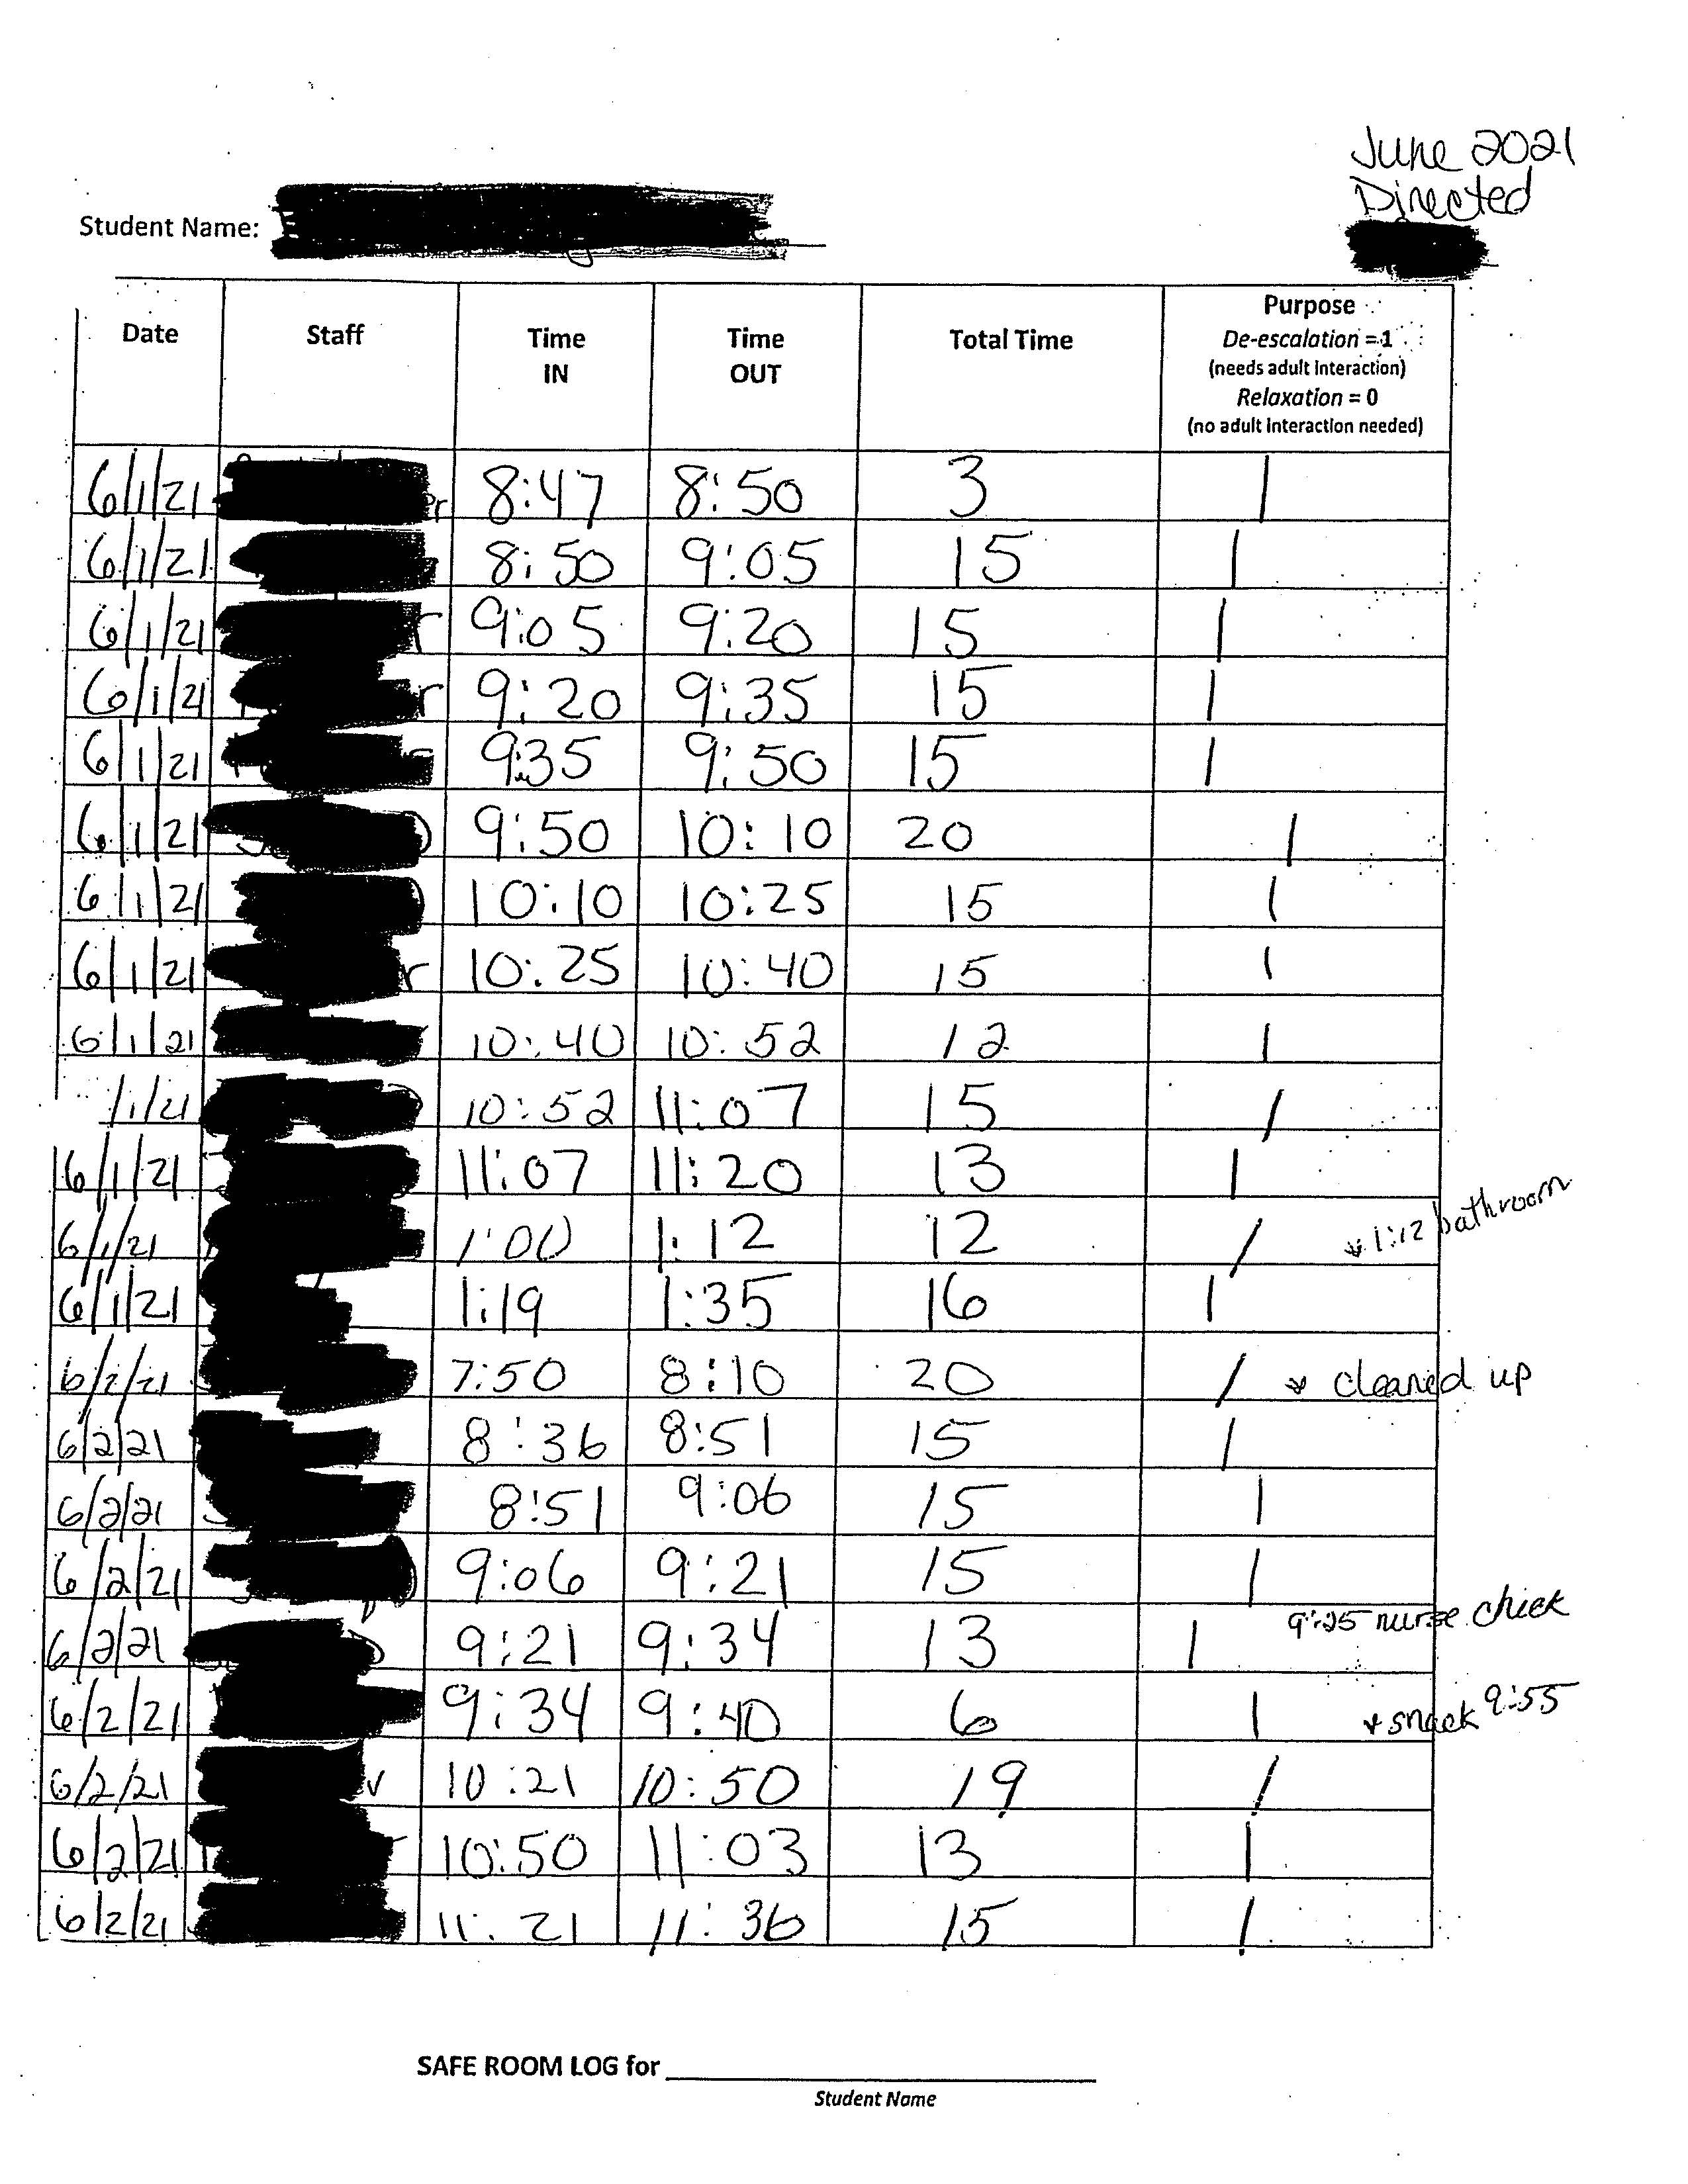 June 2021
Directed
Student Name:
Date Staff Time IN Time OUT Total Time Purpose
De-escalation = 1
(needs adult interaction)
Relaxation = 0
(no adult interaction needed)
6/1/21 8:47 8:50 3 1
6/1/21 8:50 9:05 15 1
6/1/21 9:05 9:20 15 1
6/1/21 9:20 9:35 15 1
6/1/21 9:35 9:50 15 1
6/1/21 9:50 10:10 20 1
6/1/21 10:10 10:25 15 1
6/1/21 10:25 10:40 15 1
6/1/21 10:40 10:52 12 1
/1/21 10:52 11:07 15 1
6/1/21 11:07 11:20 13 1
6/1/21 1:00 1:12 12 1 1:12 bathroom
6/1/21 1:19 1:35 16 1
6/2/21 7:50 8:10 20 1 cleaned up
6/2/21 8:36 8:51 15 1
6/2/21 8:51 9:06 15 1
6/2/21 9:06 9:21 15 1
6/2/21 9:21 9:34 13 1 9:25 nurse check
6/2/21 9:34 9:40 6 1 snack 9:55
6/2/21 10:21 10:50 19 1
6/2/21 10:50 11:03 13 1
6/2/21 11:21 11:36 15 1
SAFE ROOM LOG for
Student Name